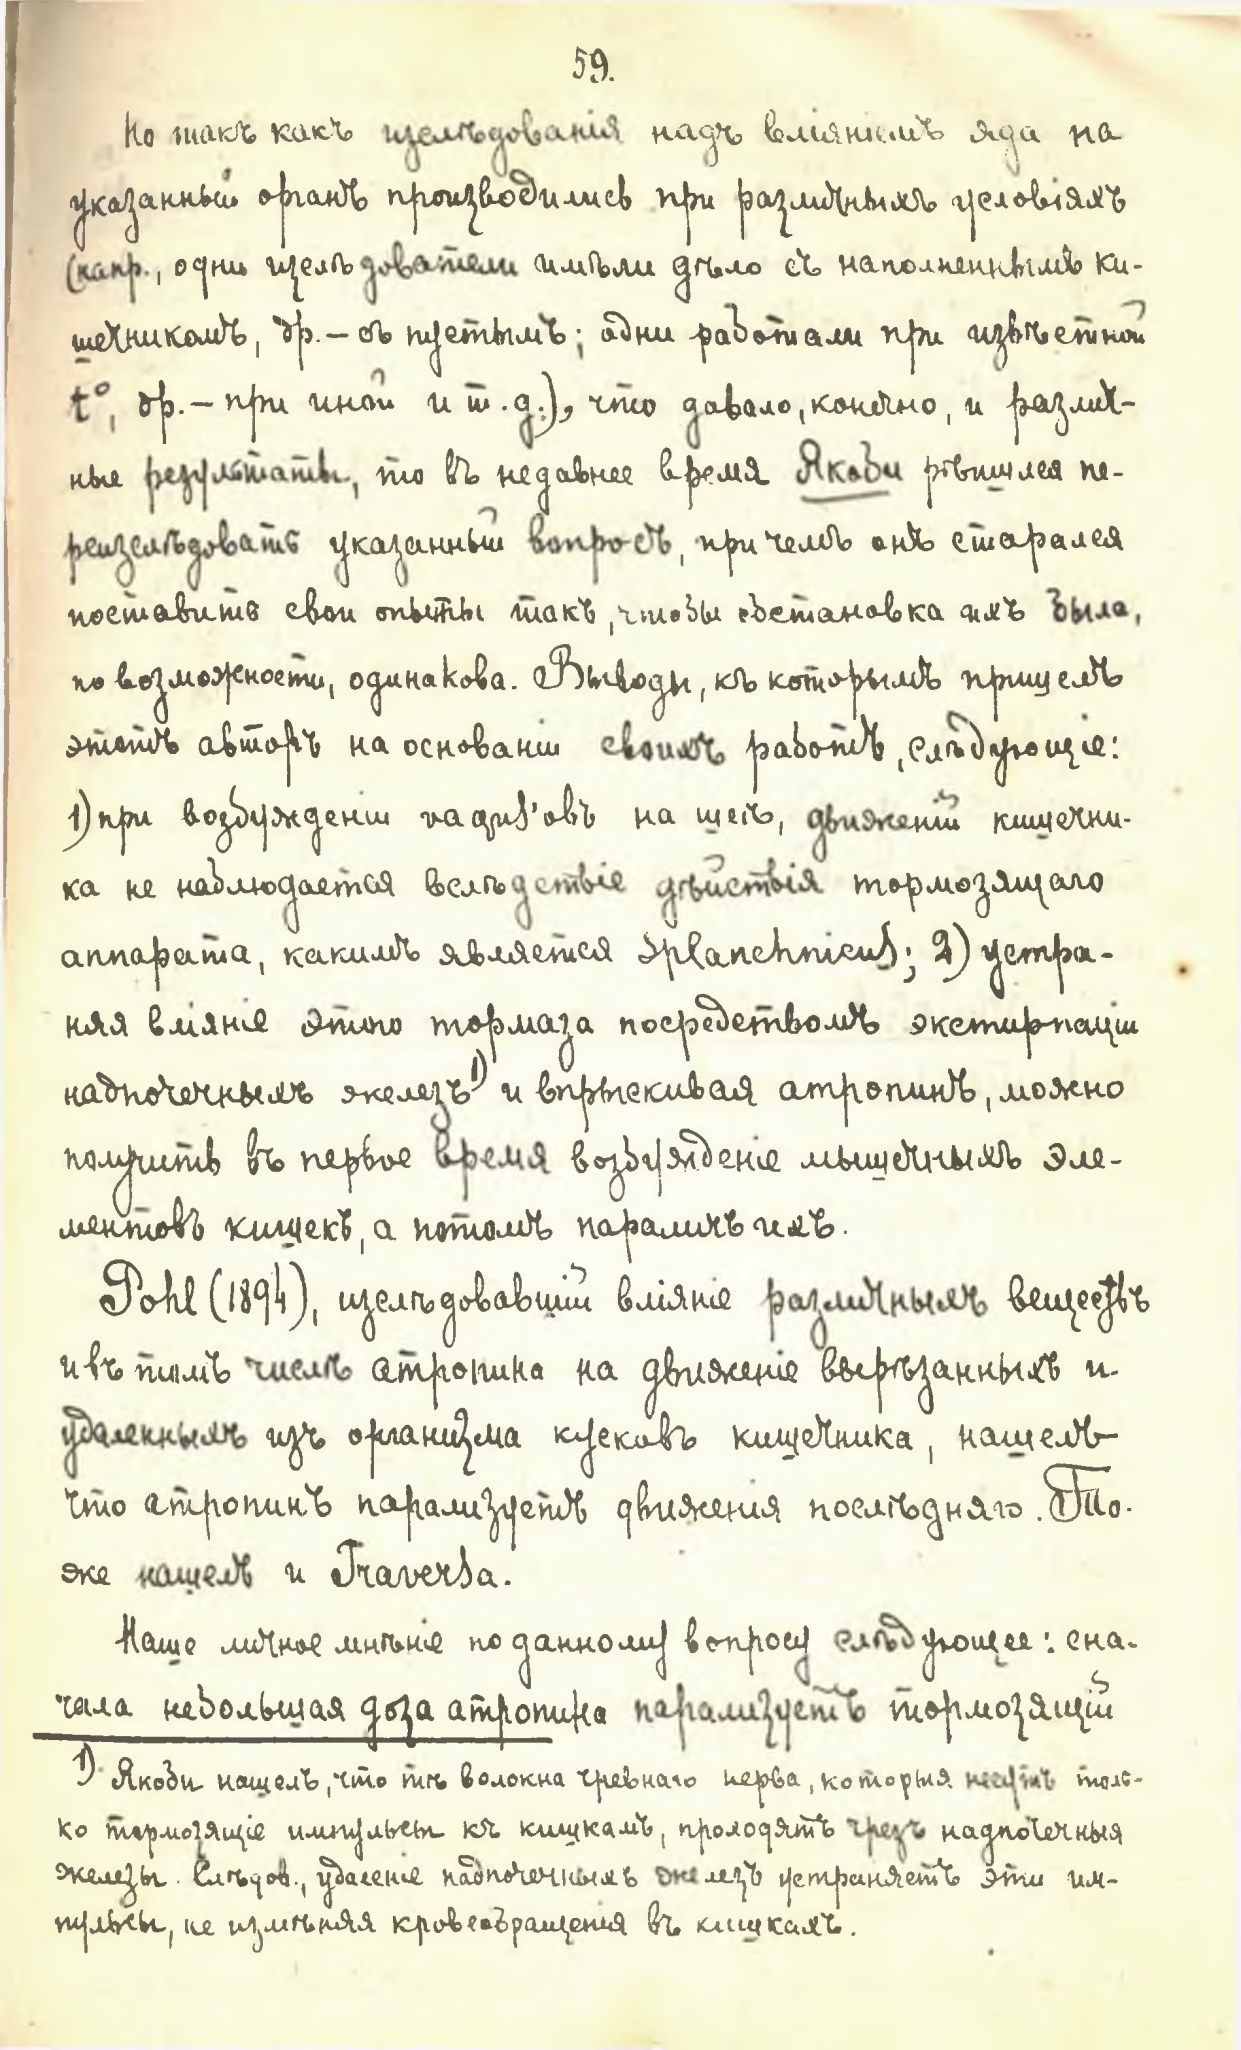 59.
Но такъ какъ изслѣдованія надъ вліяніемъ яда на
указанный органъ производились при различныхъ условіяхъ
(напр., одни изслѣдователи имѣли дѣло съ наполненнымъ ки-
шечникомъ, др. – съ пустымъ; одни работали при извѣстной
t°, др. – при иной и т. д.), что давало, конечно, и различ-
ные результаты, то въ недавнее время Якоби рѣшился пе-
реизслѣдовать указанный вопросъ, при чемъ онъ старался
поставить свои опыты такъ, чтобы обстановка ихъ была,
по возможности, одинакова. Выводы, къ которымъ пришелъ
этотъ авторъ на основаніи своихъ работъ, слѣдующіе:
1) при возбужденіи vagus'овъ на шеѣ, движеній кишечни-
ка не наблюдается вслѣдствіе дѣйствія тормозящаго
аппарата, какимъ является splanchnicus; 2) устра-
няя вліяніе этого тормаза посредствомъ экстирпаціи
надпочечныхъ железъ 1) и впрыскивая атропинъ, можно
получить въ первое время возбужденіе мышечныхъ эле-
ментовъ кишекъ, а потомъ параличъ ихъ.
Pohl (1894), изслѣдовавшій вліяніе различныхъ веществъ
и въ томъ числѣ атропина на движеніе вырѣзанныхъ и
удаленныхъ изъ организма кусковъ кишечника, нашелъ
что атропинъ парализуетъ движенія послѣдняго. То-
же нашелъ и Traversa.
Наше личное мнѣніе по данному вопросу слѣдующее: сна-
чала небольшая доза атропина парализуетъ тормозящій
1) Якоби нашелъ, что тѣ волокна чревнаго нерва, которыя несутъ толь-
ко тормозящіе импульсы къ кишкамъ, проходятъ чрезъ надпочечныя
железы. Слѣдов., удаленіе надпочечныхъ железъ устраняетъ эти им-
пульсы, не измѣняя кровеобращенія въ кишкахъ.